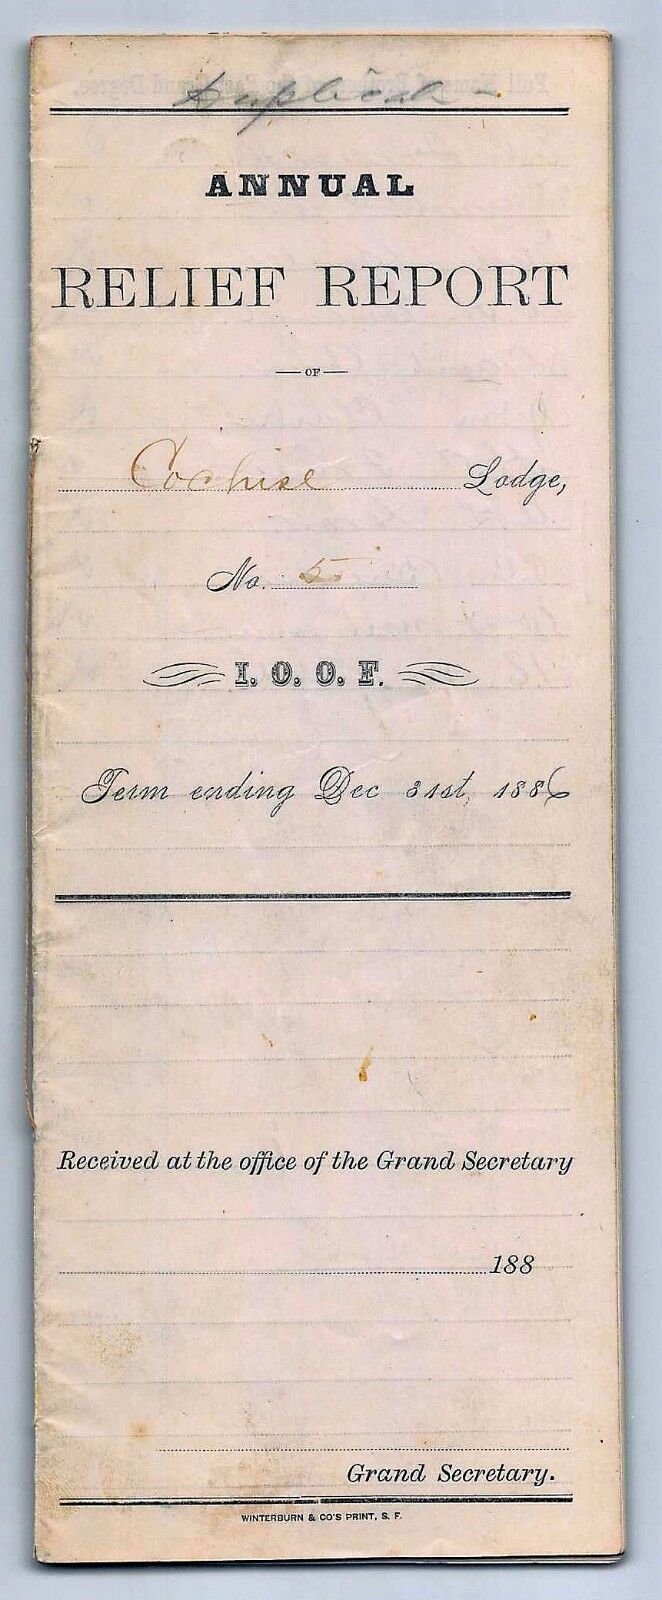 Duplicate
ANNUAL
RELIEF REPORT
— OF —
Cochise Lodge,
No. 5
I. O. O. F.
Term ending Dec 31st, 1886
Received at the office of the Grand Secretary
188
Grand Secretary.
WINTERBURN & CO'S PRINT, S. F.